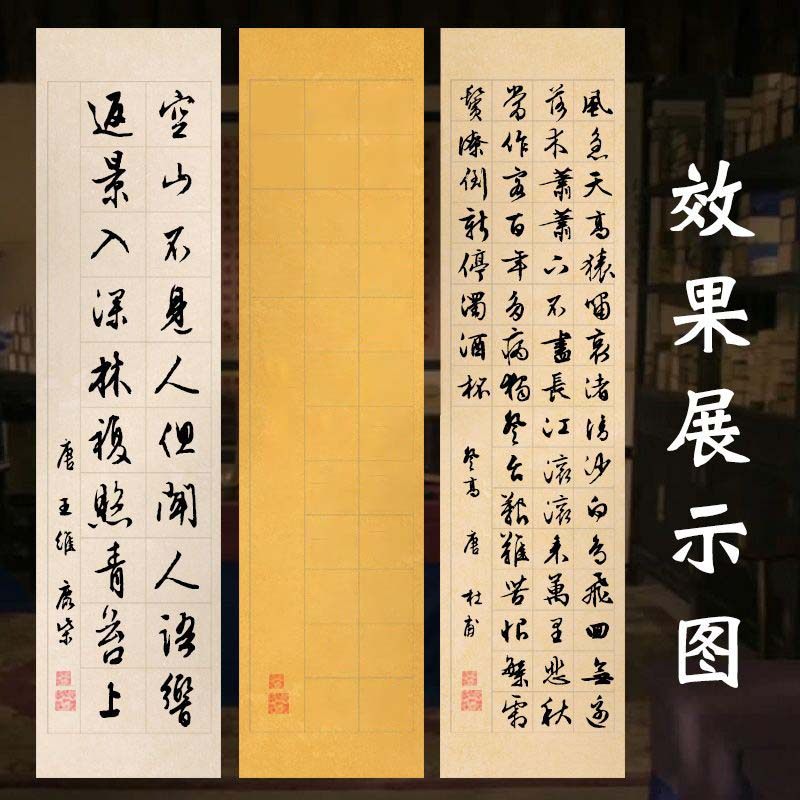 效果展示图
風急天高猿嘯哀渚清沙白鳥飛回無邊
落木蕭蕭下不盡長江滚滚來萬里悲秋
常作客百年多病獨登台艱難苦恨繁霜
鬢潦倒新停濁酒杯
登高 唐 杜甫
空山不見人但聞人語響
返景入深林複照青苔上
唐 王維 鹿柴